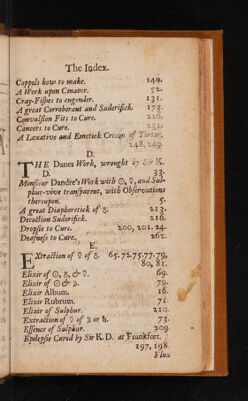 The Index.
Coppels how to make. 140.
A Work upon Cinaber. 52.
Cray-Fishes to engender. 131.
A great Corroborant and Sudorifick. 173.
Convulsion Fits to Cure. 226.
Cancers to Cure. 231.
A Laxative and Emetick Cream of Tartar,
248, 249.
D.
THE Danes Work, wrought by Sir K.
D. 33.
Monsieur Dandre's Work with ☉, ☿, and Sul-
phur-vive transparent, with Observations
thereupon. 5.
A great Diaphoretick of ♁. 213.
Decoction Sudorifick. 216.
Dropsie to Cure. 200, 201. 24.
Deafness to Cure. 262.
E.
EXtraction of ☿ of ♁. 65. 72. 75. 77. 79,
80, 81.
Elixir of ☉, ♁, & ☿. 69.
Elixir of ☉ & ☽. 70.
Elixir Album. 16.
Elixir Rubrum. 71.
Elixir of Sulphur. 210.
Extraction of ☿ of ☽ or ♄. 73.
Essence of Sulphur. 209.
Epilepsie Cured by Sir K. D. at Frankfort.
197, 198.
Flux